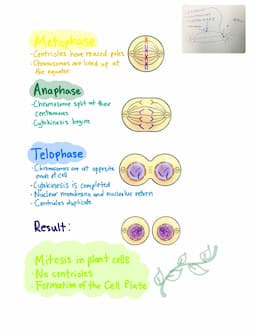 Metaphase
· Centrioles have reached poles
· Chromosomes are lined up at
the equator.
Anaphase
· Chromosome split at their
centromeres
Cytokinesis begins
Telophase
· Chromosomes are at opposite
ends of cell
· Cytokinesis is completed
· Nuclear membrane and nucleolus return
· Centrioles duplicate
Result:
Mitosis in plant cells
· No centrioles
· Formation of the Cell Plate